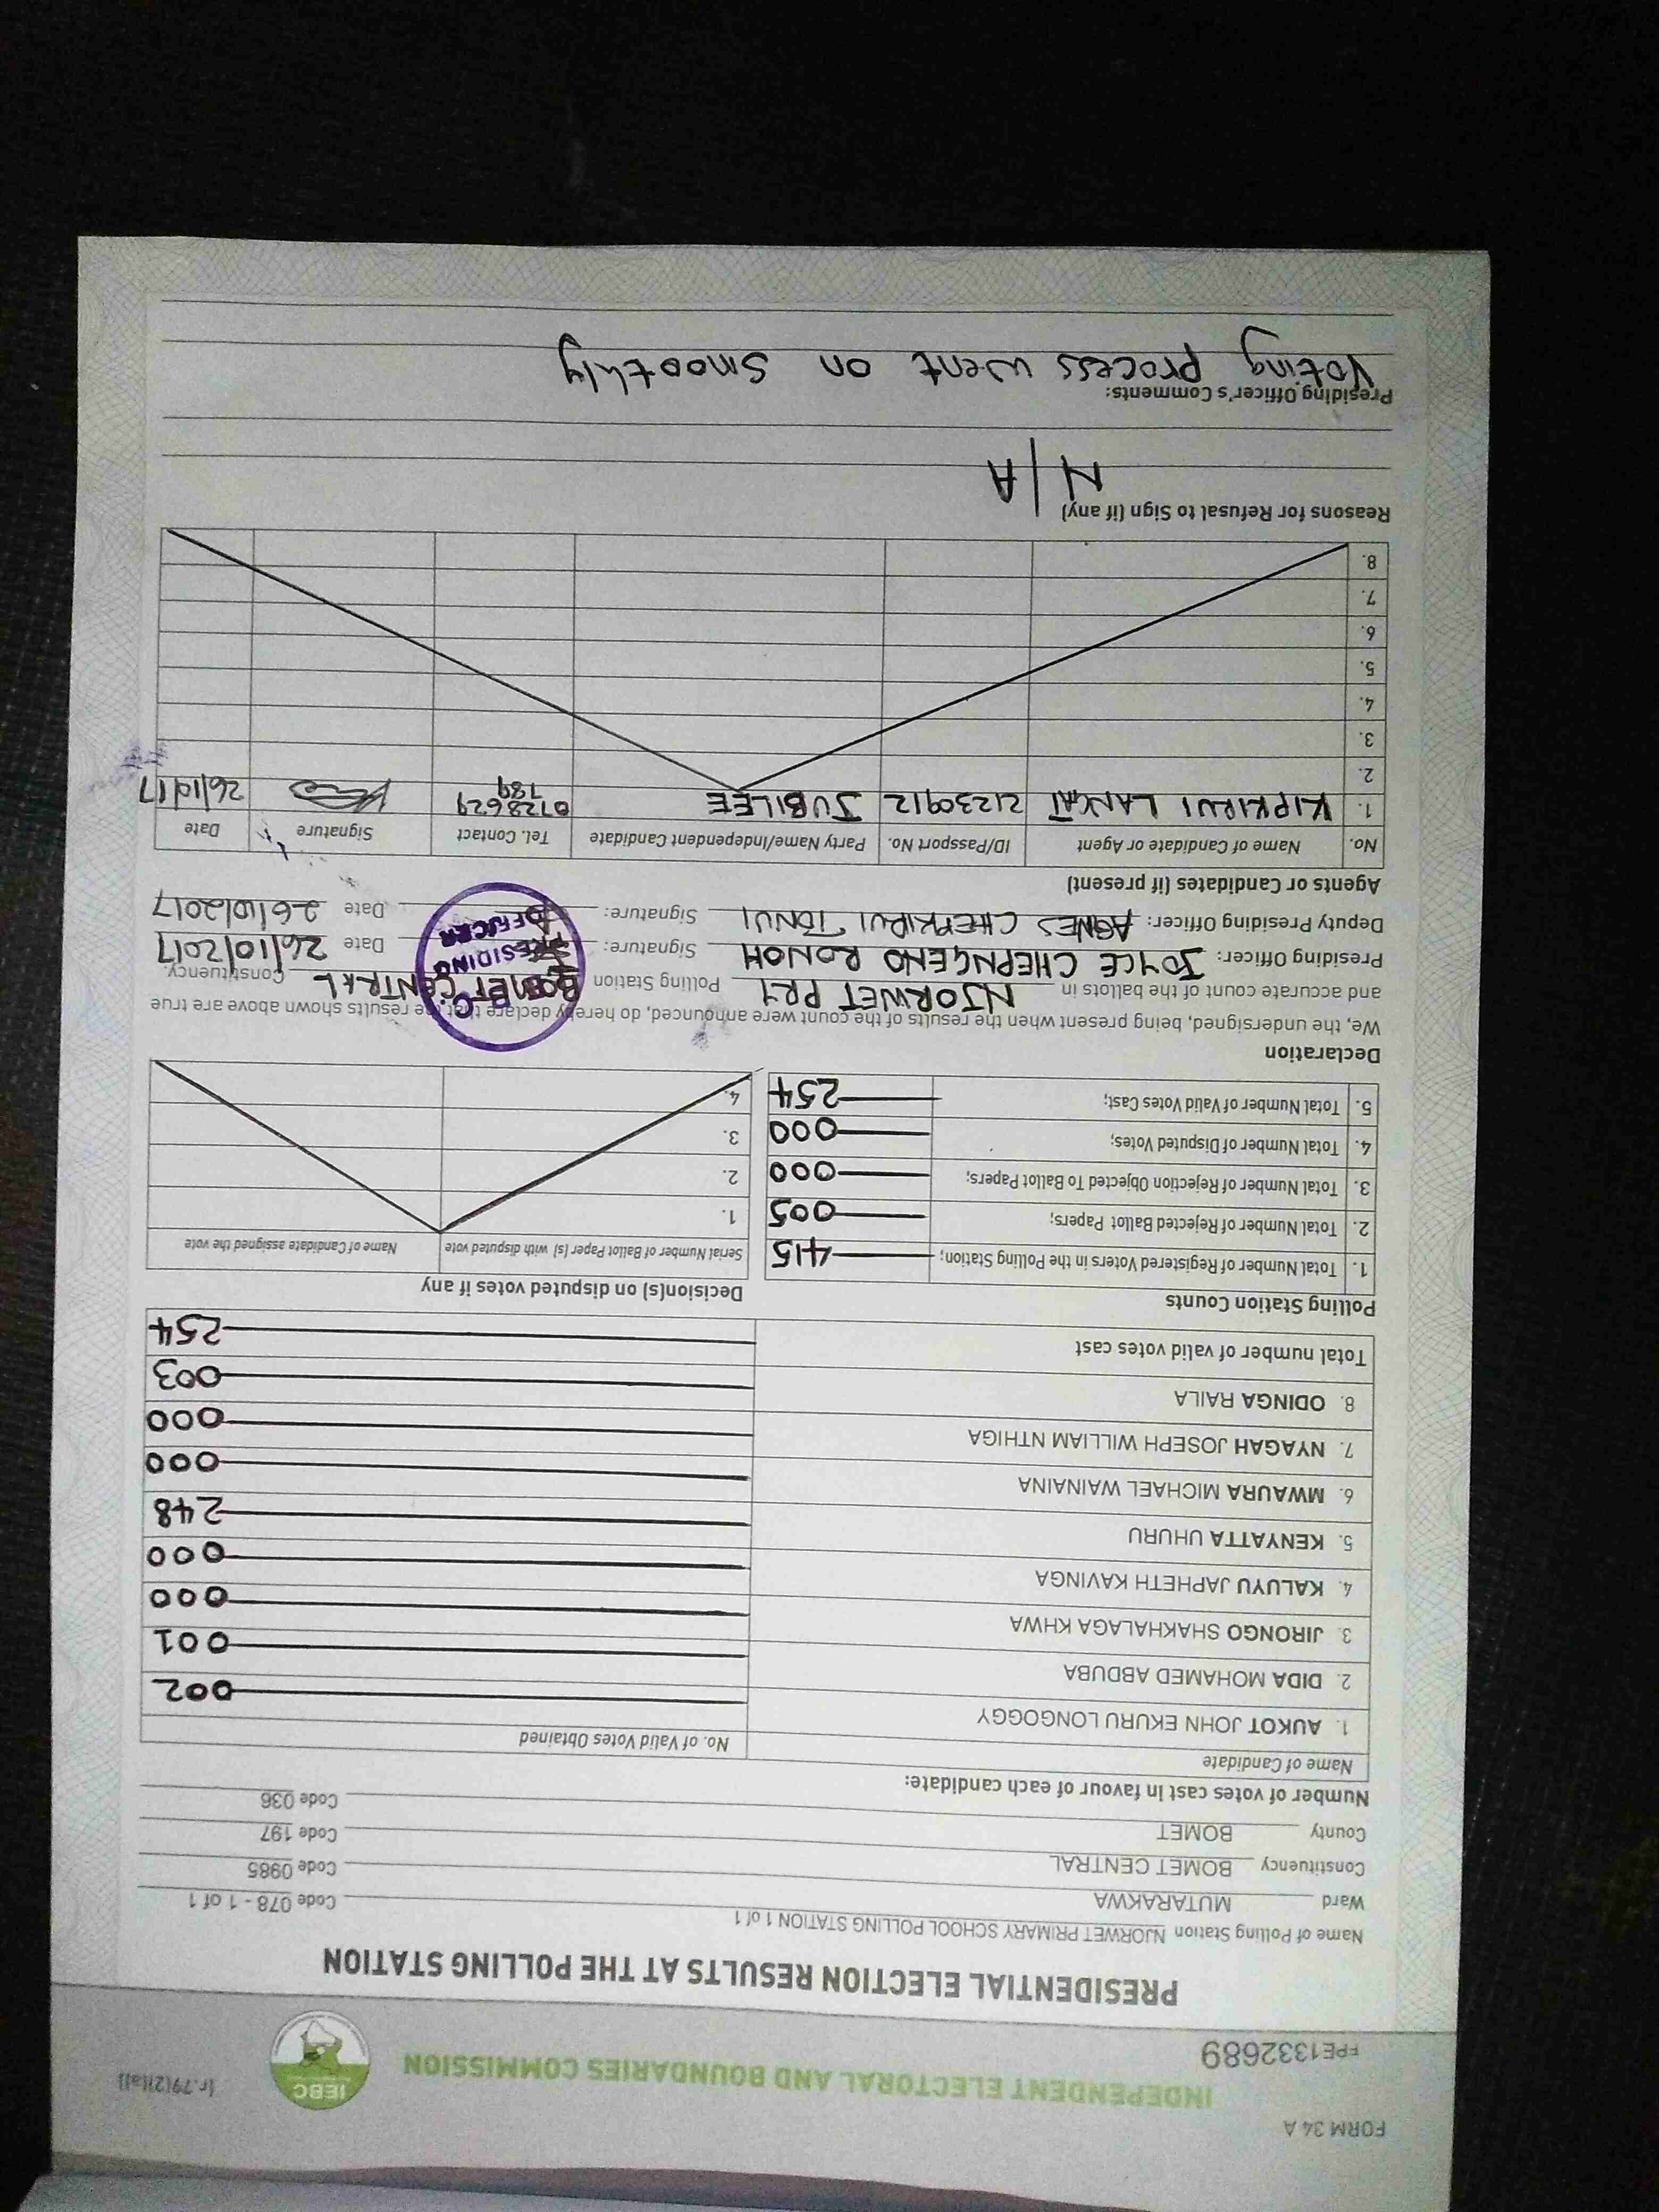 FORM 34 A
(r.79(2)(a))
INDEPENDENT ELECTORAL AND BOUNDARIES COMMISSION
IEBC
FPE1332689
PRESIDENTIAL ELECTION RESULTS AT THE POLLING STATION
Name of Polling Station NJORWET PRIMARY SCHOOL POLLING STATION 1 of 1
Ward MUTARAKWA Code 078 - 1 of 1
Constituency BOMET CENTRAL Code 0985
County BOMET Code 197
Code 036
Number of votes cast in favour of each candidate:
Name of Candidate No. of Valid Votes Obtained
1. AUKOT JOHN EKURU LONGOGGY 002
2 DIDA MOHAMED ABDUBA 001
3. JIRONGO SHAKHALAGA KHWA 000
4. KALUYU JAPHETH KAVINGA 000
5. KENYATTA UHURU 248
6. MWAURA MICHAEL WAINAINA 000
7. NYAGAH JOSEPH WILLIAM NTHIGA 000
8. ODINGA RAILA 003
Total number of valid votes cast 254
Polling Station Counts
1. Total Number of Registered Voters in the Polling Station; 415
2. Total Number of Rejected Ballot Papers; 005
3. Total Number of Rejection Objected To Ballot Papers; 000
4. Total Number of Disputed Votes; 000
5. Total Number of Valid Votes Cast; 254
Decision(s) on disputed votes if any
Serial Number of Ballot Paper (s) with disputed vote Name of Candidate assigned the vote
1.
2.
3.
4.
Declaration
We, the undersigned, being present when the results of the count were announced, do hereby declare that the results shown above are true
and accurate count of the ballots in NJORWET PRY Polling Station BOMET CENTRAL Constituency.
Presiding Officer: JOYCE CHEPNGENO RONOH Signature: Date 26/10/2017
Deputy Presiding Officer: AGNES CHEPKIRUI TONUI Signature: Date 26/10/2017
PRESIDING
OFFICER
Agents or Candidates (if present)
No. Name of Candidate or Agent ID/Passport No. Party Name/Independent Candidate Tel. Contact Signature Date
1. KIPKIRUI LANGAT 21230912 JUBILEE 0728629 789 26/10/17
2.
3.
4.
5.
6.
7.
8.
Reasons for Refusal to Sign (if any)
N/A
Presiding Officer's Comments:
Voting process went on smoothly